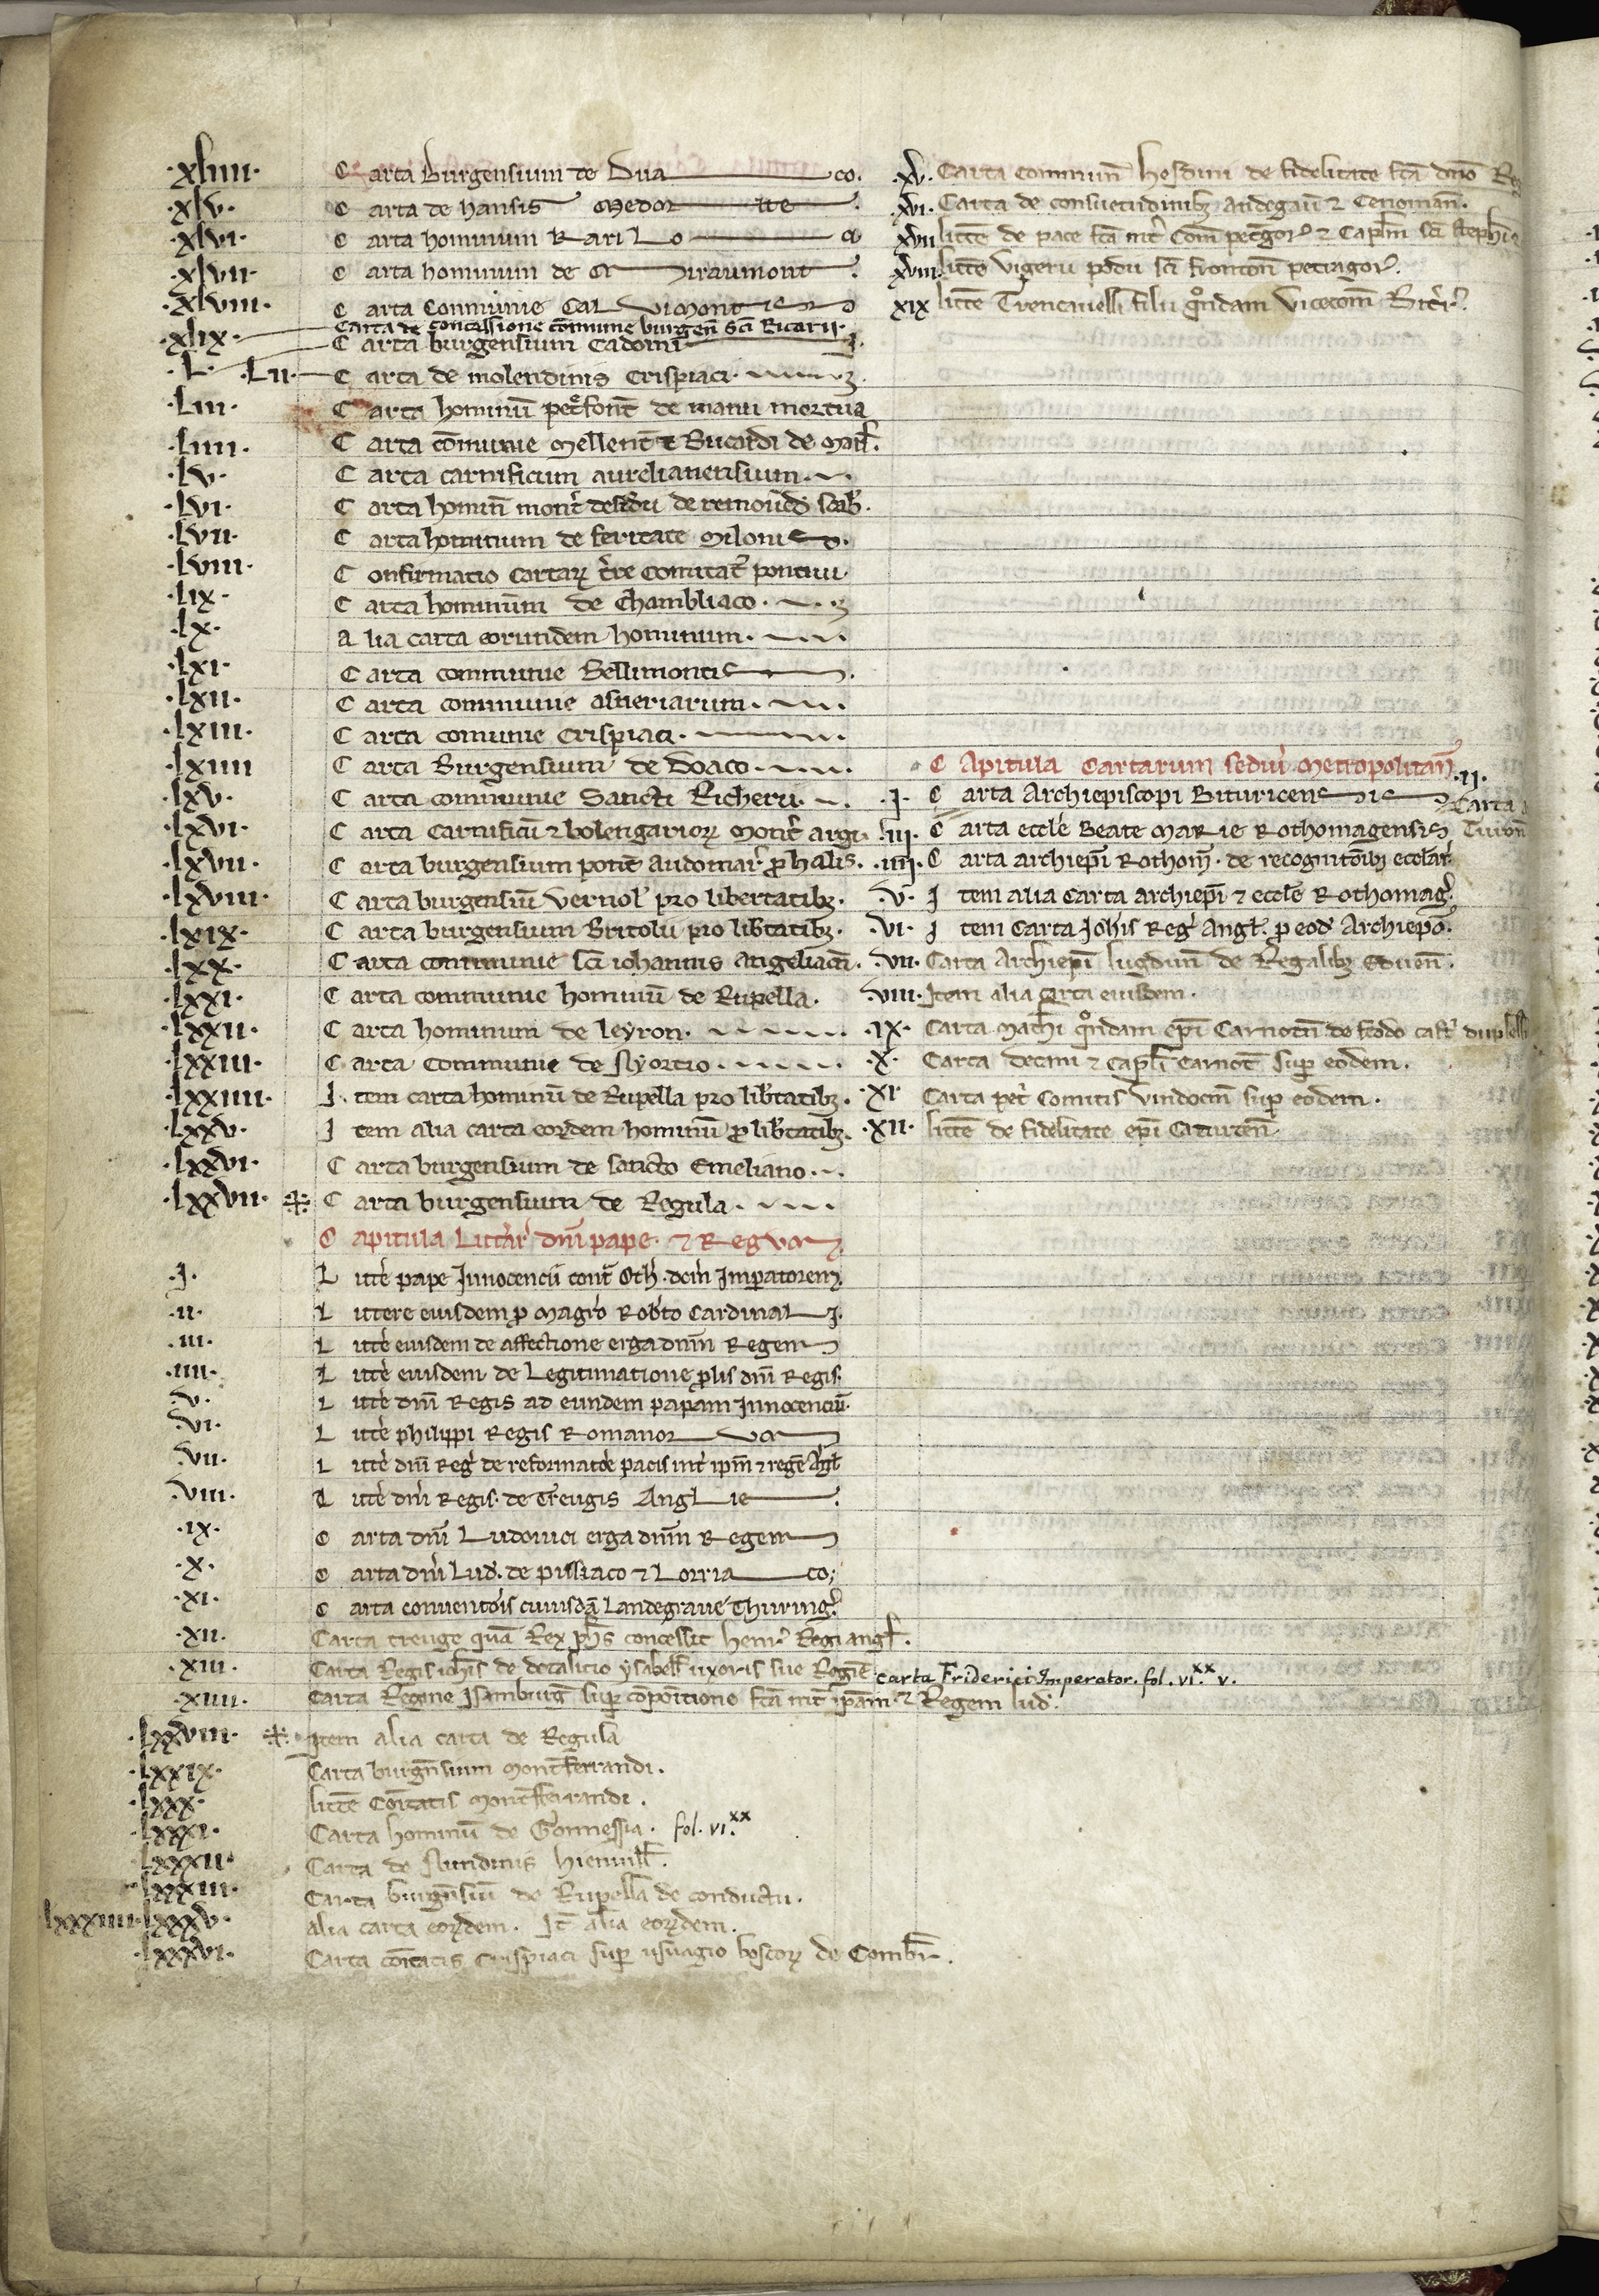 ·xliiii· Carta Burgensium de Dua co.
·xlv· Carta de hansis Medon te
·xlvi· Carta hominum Karilo ci
·xlvii· Carta hominum de Miraumont
·xlviii· Carta Conmunie Cal vi Mont
Carta de concessione cōmune burgen̄ sc̄i Ricarii·
·xlix· Carta burgensium Cadomi
·L· ·Lii· Carta de molendinis Crispiaci·
·Liii· Carta hominū de manu mortua
·Liiii· Carta cōmunie Mellent̄ & Bucardi de
·Lv· Carta carnificum aurelianensium·
·Lvi· Carta homin̄ mont̄ desiderii de
·Lvii· Carta hominum de feritate Miloni
·Lviii· Confirmatio cartaꝝ Comitat̄ pontivii·
·Lix· Carta hominum de Chambliaco·
·Lx· Alia carta eorundem hominum·
·Lxi· Carta communie Bellimontis
·Lxii· Carta communie asneriarum·
·Lxiii· Carta comunie Crispiaci·
·Lxiiii Carta Burgensium de Doaco·
·Lxv· Carta communie Sancti Richerii·
·Lxvi· Carta Carnificū ⁊ bolengarioꝝ Mont̄ argi·
·Lxvii· Carta burgensium pont̄ audomar̄ ꝓ halis·
·Lxviii· Carta burgensiū vernol' pro libertatibꝫ·
·Lxix· Carta burgensium Britolii pro lib'tatibꝫ·
·Lxx· Carta communie sc̄i iohannis angeliacn̄·
·Lxxi· Carta communie hominū de Rupella·
·Lxxii· Carta hominum de leyron·
·Lxxiii· Carta Communie de Nyortio·
·Lxxiiii· Item carta hominū de Rupella pro lib'tatibꝫ·
·Lxxv· Item alia carta eoꝝdem hominū ꝓ lib'tatibꝫ·
·Lxxvi· Carta burgensium de sancto Emeliano·
·Lxxvii· Carta burgensium de Regula·
Capitula Litt'ar' dn̄i pape· ⁊ Reg vm
·I· Litt'e pape Innocencii cont̄ Oth· dc̄m Imperatorem·
·ii· Littere eiusdem ꝓ Magr̄o Rob'to Cardinal i·
·iii· Litt'e eiusdem de affectione erga dnm̄ Regem
·iiii· Litt'e eiusdem de Legitimatione ꝓlis dn̄i Regis·
·v· Litt'e dn̄i Regis ad eundem papam Innocenciū·
·vi· Litt'e philippi Regis Romanor vm
·vii· Litt'e dn̄i Reg' de reformat'oe pacis int' ip̄m ⁊ regē Agl'
·viii· Litt'e dn̄i Regis· de Treugis Angl ie
·ix· Carta dn̄i Ludovici erga dnm̄ Regem
·x· Carta dn̄i Lud'· de pissiaco ⁊ Lorria co;
·xi· Carta conuent'ois cuiusdā Landegraue Thuring'·
·xii· Carta treuge quā Rex ph̄s concessit hen' Regi angl'·
·xiii· Carta Regis ioh̄is de dotalicio ysabell' uxoris sue Regīe· carta Friderici Imperator. fol. vi.xx v.
·xiiii· Carta Regine Isamburg' sup cōpoītione fc̄a int' ipam̄ ⁊ Regem lud'·
·Lxxviii· Item alia carta de Regula
·Lxxix· Carta burgn̄sium Montferrandi·
·Lxxx· litt'e Cōitatis Montferrandi·
·Lxxxi· Carta hominū de Gonnessia· fol. vi.xx
·Lxxxii· Carta de Nundinis hienvill'·
·Lxxxiii· Carta burgn̄siū de Rupella de conductu·
·Lxxxiiii·Lxxxv· alia carta eoꝝdem· It̄ alia eoꝝdem·
·Lxxxvi· Carta cōitatis Crispiaci sup usuagio boscoꝝ de
·xv· Carta communn̄ hesdini de fidelitate fc̄a dn̄o Reg
·xvi· Carta de consuetudinibꝫ andegaū ⁊ Cenomann̄·
·xvii litt'e de pace fc̄a int' Com̄ pet'gor' ⁊ Capl'm sc̄i steph̄i
·xviii· litt'e vigerii podii sc̄i frontoñ petragor'·
xix litt'e Trencauelli filii q°ndam vicecom̄ Bit'r'·
Capitula Cartarum sediū Metropolitan̄·
·I· Carta Archiepiscopi Bituricen si ·ii· Carta Turon̄
·iii· Carta eccl'e Beate Marie Rothomagensis
·iiii· Carta archiep̄i Rothom̄· de recognit'oibꝫ eccl'ar'
·v· Item alia Carta archiep̄i ⁊ eccl'e Rothomag'·
·vi· Item Carta Ioh̄is Reg' Angl'· ꝓ eod' Archiep̄o·
·vii· Carta Archiep̄i lugdun̄ de Regalibꝫ Eduen̄·
·viii· Item alia carta eiusdem·
·ix· Carta Math'i q°ndam ep̄i Carnoten̄ de feodo cast'
·x· Carta decani ⁊ capl'i Carnot̄ sup eodem·
·xi· Carta pet' Comitis vindocin̄ sup eodem·
·xii· litt'e de fidelitate ep̄i Caturcen̄